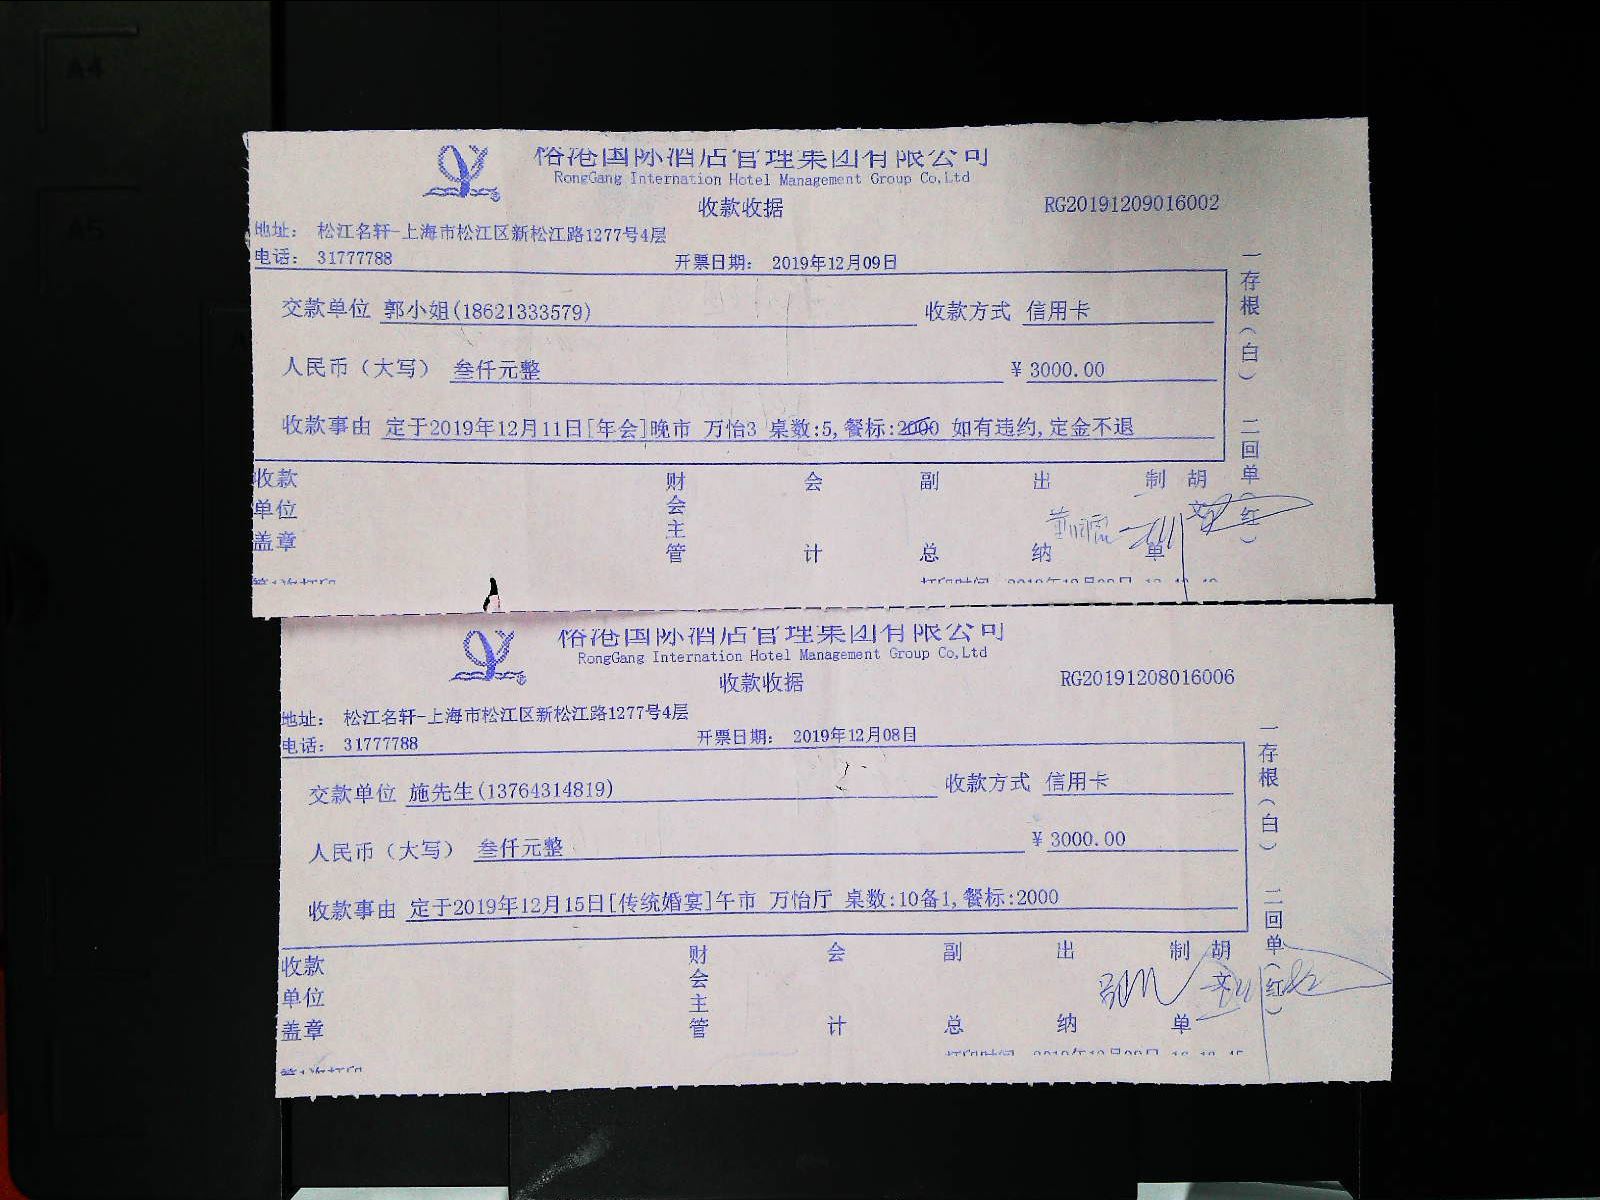 榕港国际酒店管理集团有限公司
RongGang Internation Hotel Management Group Co,Ltd
收款收据
RG20191209016002
地址： 松江名轩-上海市松江区新松江路1277号4层
电话： 31777788
开票日期： 2019年12月09日
交款单位 郭小姐(18621333579) 收款方式 信用卡
人民币（大写） 叁仟元整 ¥ 3000.00
收款事由 定于2019年12月11日[年会]晚市 万怡3 桌数:5,餐标:2000 如有违约,定金不退
收款单位盖章 财会主管 会计 副总 出纳 制单 胡文
一存根（白） 二回单（红）
第1次打印
打印时间
榕港国际酒店管理集团有限公司
RongGang Internation Hotel Management Group Co,Ltd
收款收据
RG20191208016006
地址： 松江名轩-上海市松江区新松江路1277号4层
电话： 31777788
开票日期： 2019年12月08日
交款单位 施先生(13764314819) 收款方式 信用卡
人民币（大写） 叁仟元整 ¥ 3000.00
收款事由 定于2019年12月15日[传统婚宴]午市 万怡厅 桌数:10备1,餐标:2000
收款单位盖章 财会主管 会计 副总 出纳 制单 胡文
一存根（白） 二回单（红）
第1次打印
打印时间
A4
A5